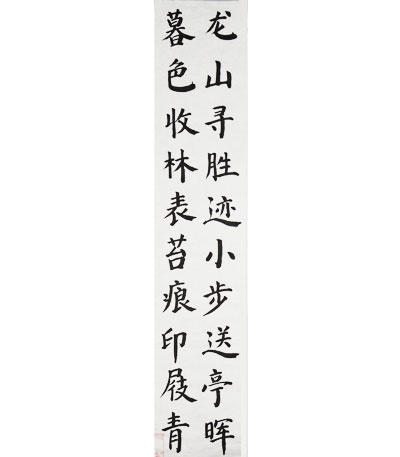 龙山寻胜迹小步送亭晖
暮色收林表苔痕印屐青